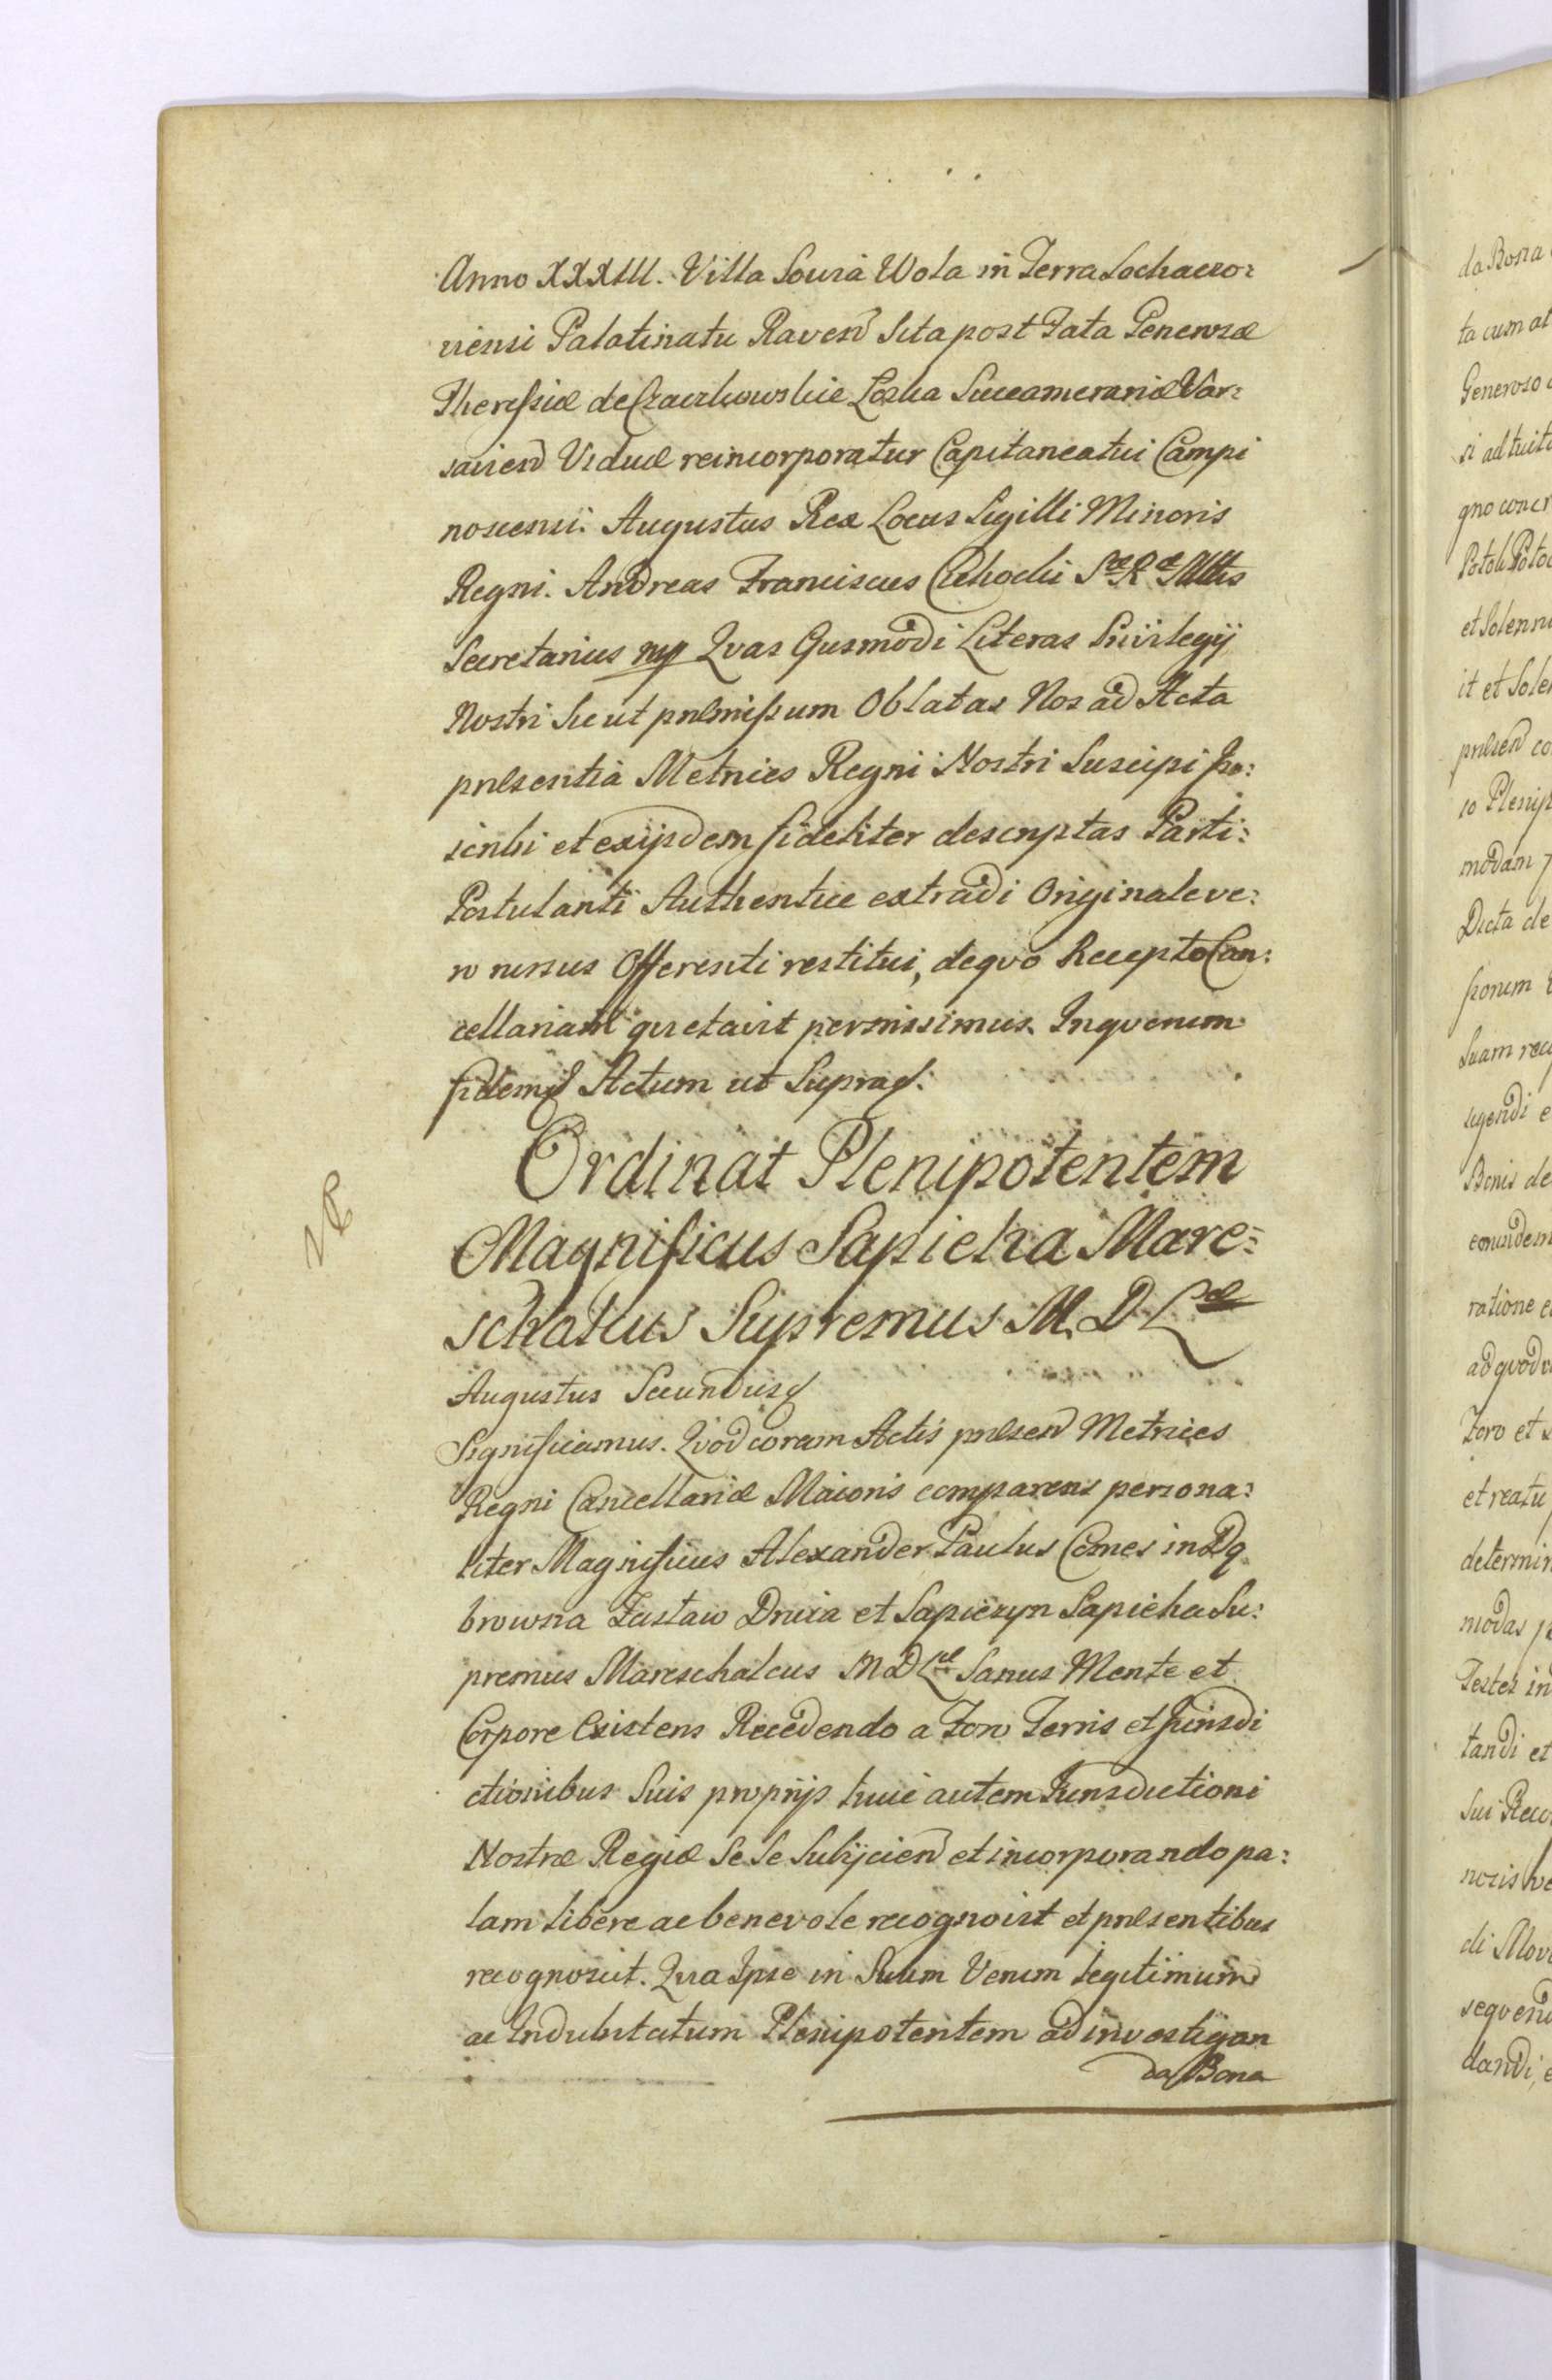 Anno XXXIII. Villa Sowia Wola in Terra Sochaczo:
viensi Palatinatu Raven Sita post Fata Generosæ
Theressiæ de Czaczkowskie Loska Succamerariæ Var:
savien Viduæ reincorporatur Capitaneatui Campi
noscensi. Augustus Rex Locus Sigilli Minoris
Regni. Andreas Franciscus Cichocki Sæ Ræ Mttis
Secretarius mp Qvas Ejusmodi Literas Privilegij
Nostri Sic ut præmissum Oblatas Nos ad Acta
præsentia Metrices Regni Nostri Suscipi In:
scribi et exijsdem fideliter descriptas Parti:
Postulanti Authentice extradi Originale ve:
ro rursus Offerenti restitui, de qvo Recepto Can:
cellariam qvietavit permissimus. In qvorum
fidem Actum ut Supra
Ordinat Plenipotentem
Magnificus Sapieha Mare:
schalcus Supremus M. D. Læ
VR
Augustus Secundus
Significamus. Qvod coram Actis præsen Metrices
Regni Cancellariæ Maioris comparens persona:
liter Magnificus Alexander Paulus Comes in Dą
browna Zastaw Druia et Sapiezyn Sapieha Su:
premus Mareschalcus M D Læ Sanus Mente et
Corpore Existens Recedendo a Foro Terris et Jurisdi
ctionibus Suis proprijs huic autem Jurisdictioni
Nostræ Regiæ Se Se Subijcien et incorporando pa:
lam libere ac benevole recognovit et præsentibus
recognoscit. Qvia Ipse in Suum Verum legitimum
ac Indubitatum Plenipotentem ad investigan
da Bona
da Bona
ta cum at
Generoso
si ad tuiti
gno concr
Potoki Potoc
et Solenn
it et Sole
præsen co
so Plenip
modam
Dicta de
Suam rec
Bonis de
eorundem
ratione e
ad qvod
Foro et
et reatu
determin
modas p
Testes in
tandi et
Sui Reco
di Mov
seqvend
dandi, e